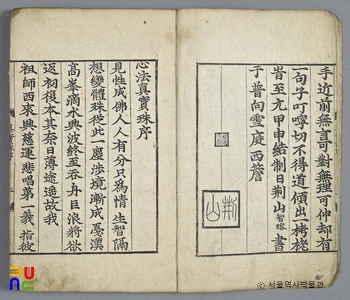 手近前無言可對無理可伸却有
一句子叮嚀切不得道傾出一栲栳
旹至元甲申結制日荆山智㮣書
于普向靈庭西簷
荆山
心法真寶珠序
見性成佛人人有分只為情生智隔
想變體殊從此一塵涉境漸成戞漢
高峯滴水興波終至吞舟巨浪將欲
返初復本其奈日薄途遥故我
祖師西來興慈運悲唱第一義指彼
서울역사박물관